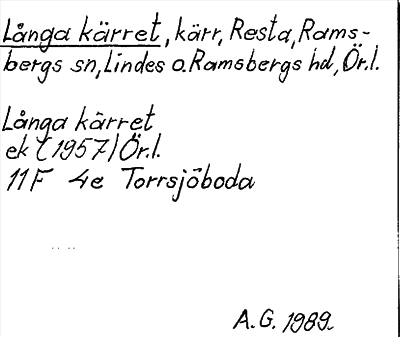 Långa kärret, kärr, Resta, Rams-
bergs sn, Lindes o. Ramsbergs hd, Ör.l.
Långa kärret
ek (1957) Ör.l.
11F 4e Torrsjöboda
A.G. 1989.